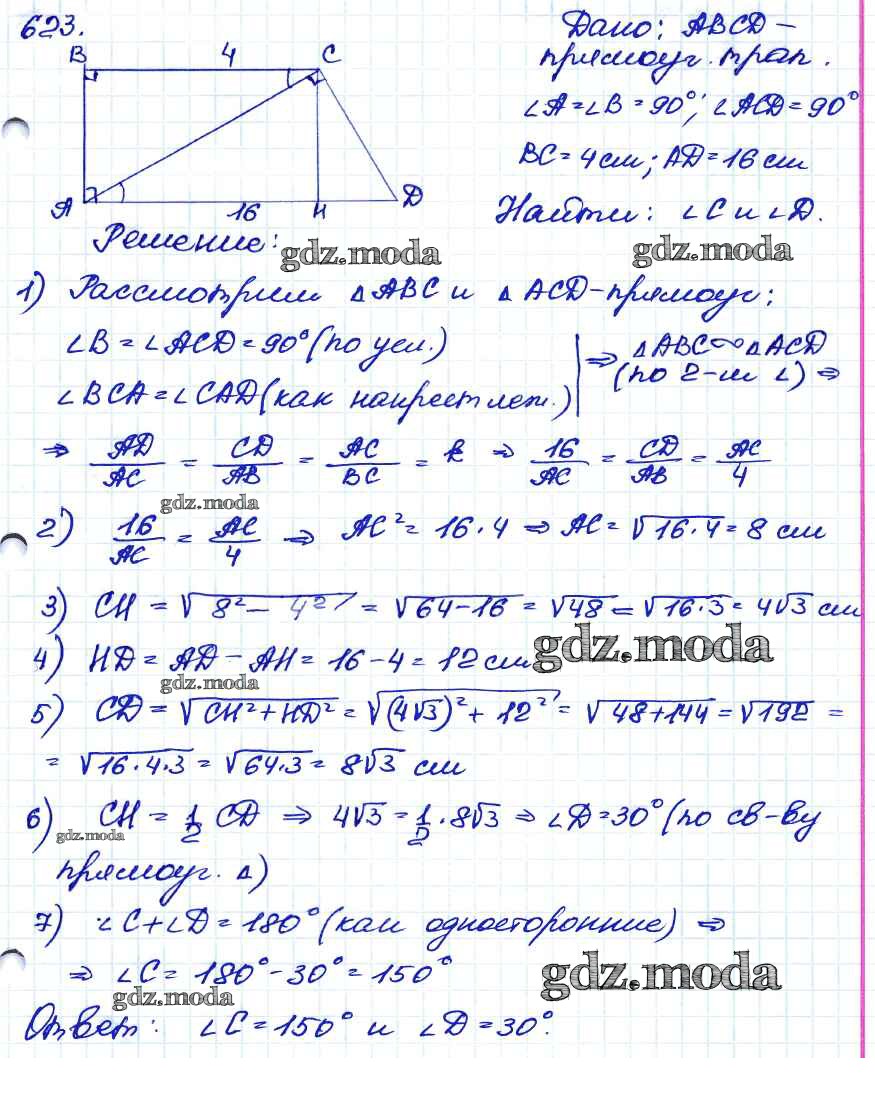 623.
Дано: ABCD –
прямоуг. трап.
∠A = ∠B = 90°; ∠ACD = 90°
BC = 4 см; AD = 16 см
Найти: ∠C и ∠D.
B 4 C
A 16 H D
Решение:
gdz.moda
gdz.moda
1) Рассмотрим △ABC и △ACD – прямоуг;
∠B = ∠ACD = 90° (по усл.)
∠BCA = ∠CAD (как накрест леж.)
⇒ △ABC ∞ △ACD
(по 2-м ∠) ⇒
⇒ AD/AC = CD/AB = AC/BC = k ⇒ 16/AC = CD/AB = AC/4
gdz.moda
2) 16/AC = AC/4 ⇒ AC² = 16·4 ⇒ AC = √16·4 = 8 см
3) CH = √8² – 4² = √64–16 = √48 = √16·3 = 4√3 см
4) HD = AD – AH = 16 – 4 = 12 см
gdz.moda
gdz.moda
5) CD = √CH² + HD² = √(4√3)² + 12² = √48+144 = √192 =
= √16·4·3 = √64·3 = 8√3 см
6) CH = 1/2 CD ⇒ 4√3 = 1/2 · 8√3 ⇒ ∠D = 30° (по св-ву
gdz.moda
прямоуг. △)
7) ∠C + ∠D = 180° (как односторонние) ⇒
⇒ ∠C = 180° – 30° = 150°
gdz.moda
gdz.moda
Ответ: ∠C = 150° и ∠D = 30°.